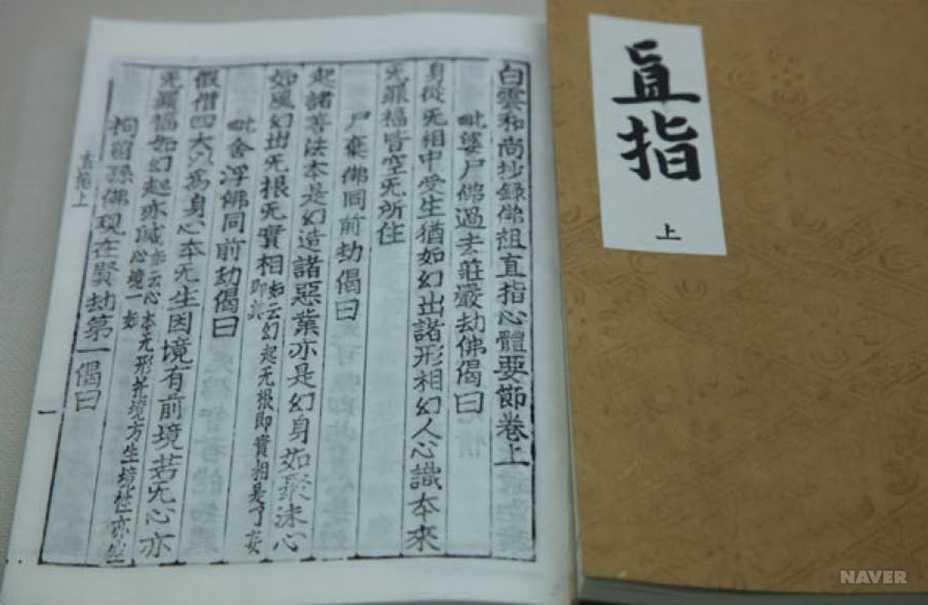 直指
上
白雲和尚抄錄佛祖直指心體要節卷上
毗婆尸佛過去莊嚴劫佛偈曰
身從无相中受生猶如幻出諸形相幻人心識本來
无罪福皆空无所住
尸棄佛同前劫偈曰
起諸善法本是幻造諸惡業亦是幻身如聚沫心
如風幻出无根无實相
如云幻起无根即實相是了妄
即真
毗舍浮佛同前劫偈曰
假借四大以爲身心本无生因境有前境若无心亦
无罪福如幻起亦滅
亦云心本无形托境方生境性亦空
心境一如
拘留孫佛現在賢劫第一偈曰
直指上
一
NAVER